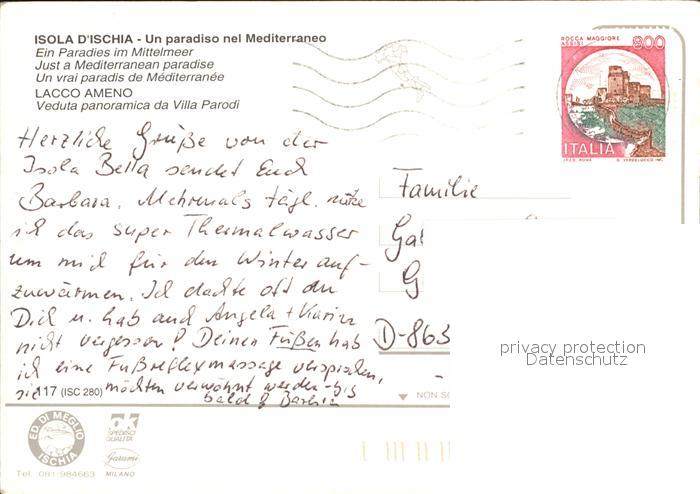 ISOLA D'ISCHIA - Un paradiso nel Mediterraneo
Ein Paradies im Mittelmeer
Just a Mediterranean paradise
Un vrai paradis de Méditerranée
LACCO AMENO
Veduta panoramica da Villa Parodi
ROCCA MAGGIORE
ASSISI
800
ITALIA
Herzliche Grüße von der
Isola Bella sendet Euch
Barbara. Mehrmals tägl. nütze
ich das super Thermalwasser
um mich für den Winter auf-
zuwärmen. Ich dachte oft an
Dich u. hab auch Angela + Karin
nicht vergessen! Deinen Füßen hab
ich eine Fußreflexmassage versprochen,
sie möchten verwöhnt werden - bis
bald Barbara
117 (ISC 280)
Familie
Ga
G
D-863
privacy protection
Datenschutz
NON SC
ED. DI MEGLIO
ISCHIA
Tel. 081-984663
ak
SPEDISCI
QUALITA'
Garami
MILANO